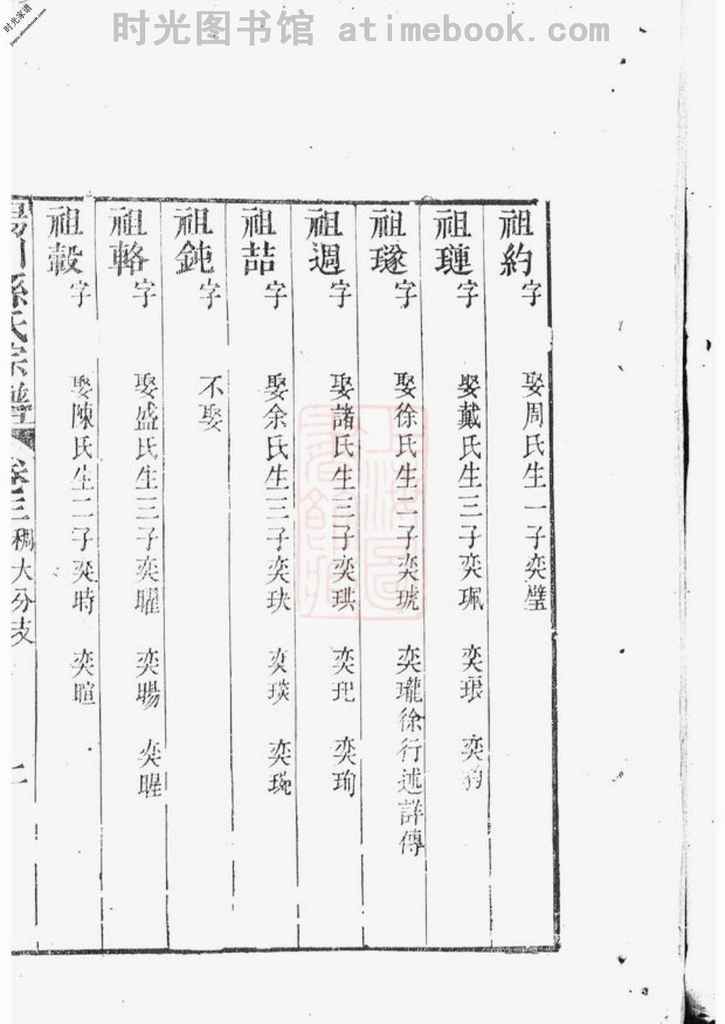 时光图书馆 atimebook.com
时光家谱
祖約字 娶周氏生一子奕璧
祖璉字 娶戴氏生三子奕珮 奕琅
祖璲字 娶徐氏生二子奕琥 奕瓏徐行述詳傳
祖週字 娶諸氏生三子奕珙 奕玘 奕珣
祖喆字 娶余氏生三子奕玦 奕琰 奕琬
祖鈍字 不娶
祖輅字 娶盛氏生三子奕曜 奕暘
祖轂字 娶陳氏生二子奕時 奕暄
川孫氏宗譜 卷三 稠大分支 二